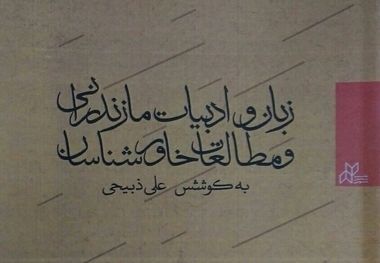 زبان و ادبیات مازندرانی
و مطالعات خاورشناسان
به کوشش علی ذبیحی